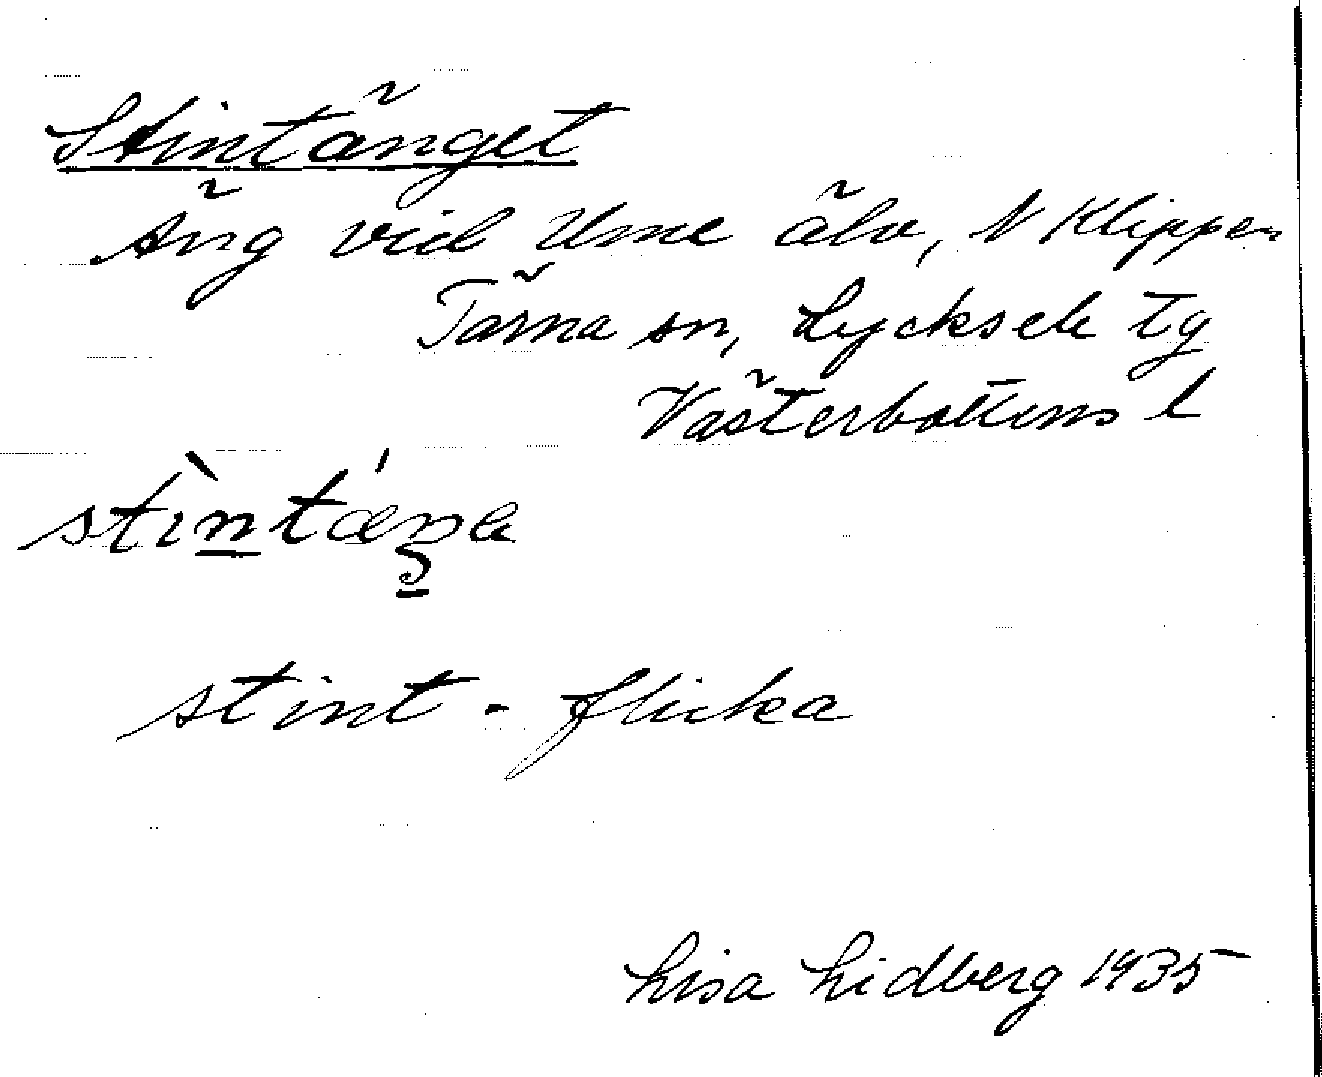 Stintänget
Äng vid Ume älv, N Klippen
Tärna sn, Lycksele tg
Västerbottens l
stìntǽŋa
stint - flicka
Lisa Lidberg 1935